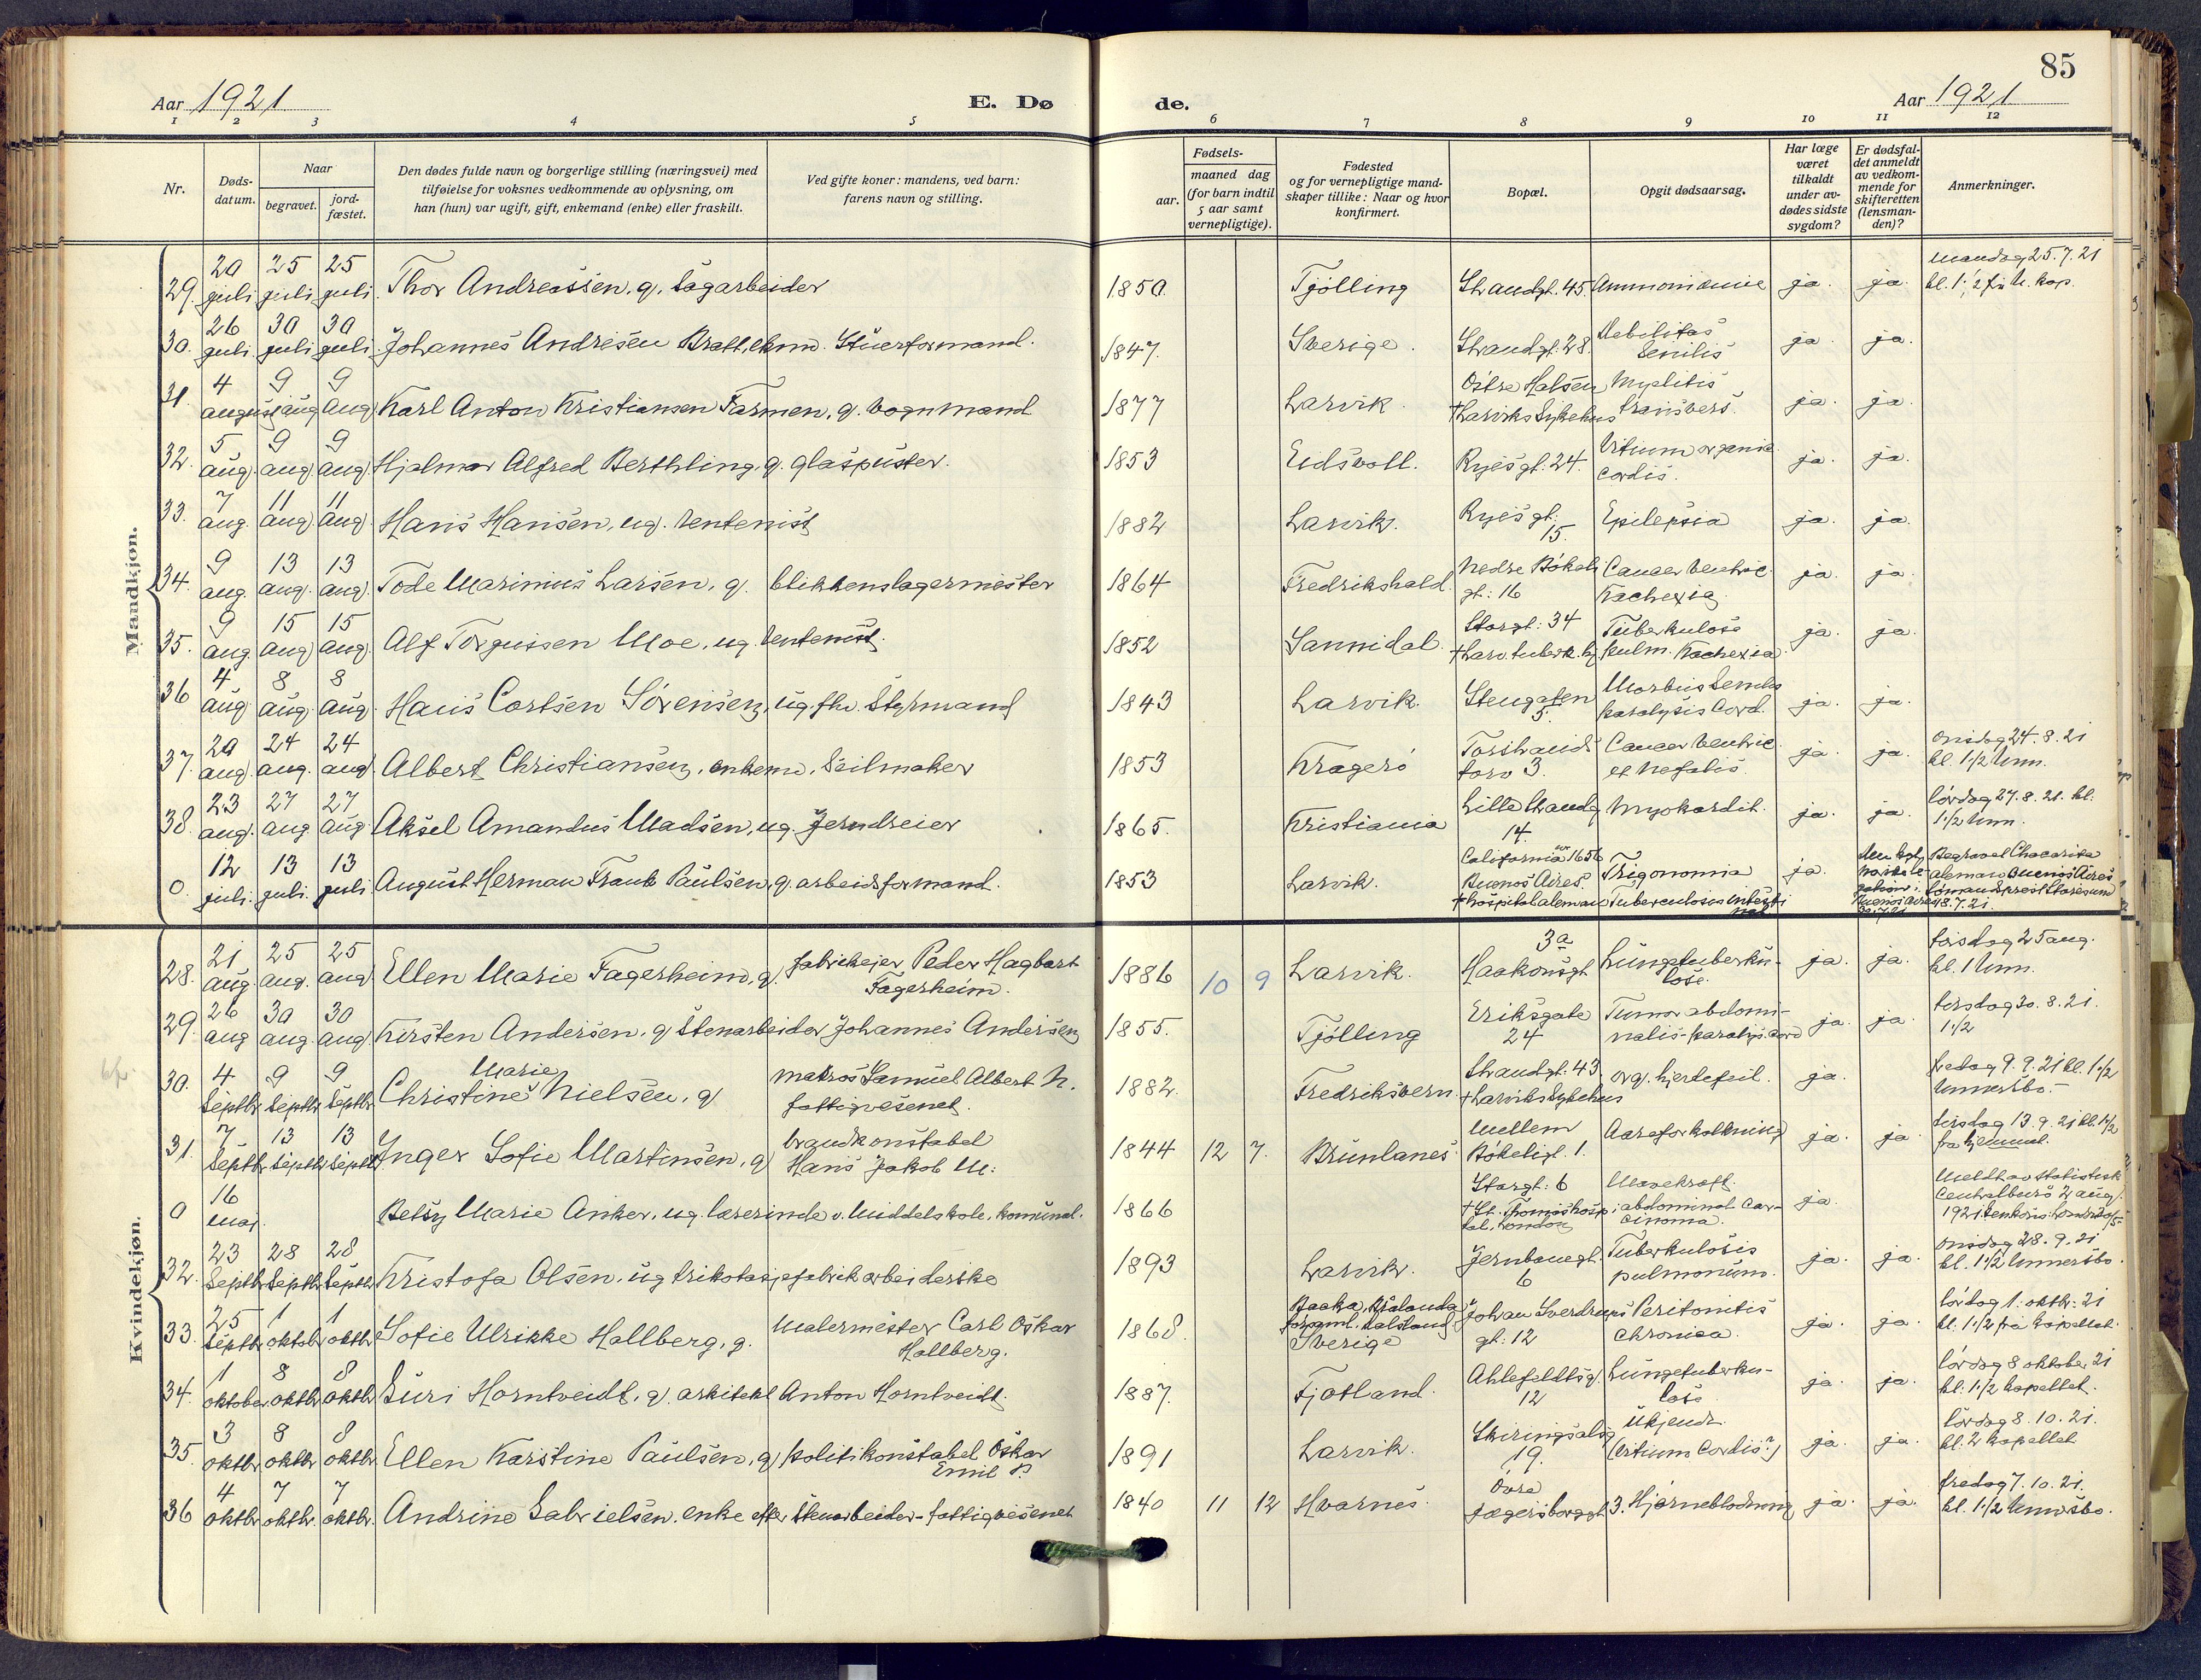 85
Aar 1921 E. Dø de. Aar 1921
1 2 3 4 5 6 7 8 9 10 11 12
Nr.
Døds-
datum.
Naar
begravet.
jord-
fæstet.
Den dødes fulde navn og borgerlige stilling (næringsvei) med
tilføielse for voksnes vedkommende av oplysning, om
han (hun) var ugift, gift, enkemand (enke) eller fraskilt.
Ved gifte koner: mandens, ved barn:
farens navn og stilling.
Fødsels-
aar.
maaned dag
(for barn indtil
5 aar samt
vernepligtige).
Fødested
og for vernepligtige mand-
skaper tillike: Naar og hvor
konfirmert.
Bopæl.
Opgit dødsaarsag.
Har læge
været
tilkaldt
under av-
dødes sidste
sygdom?
Er dødsfal-
det anmeldt
av vedkom-
mende for
skifteretten
(lensman-
den)?
Anmerkninger.
Mandkjøn.
29. 20 juli 25 juli 25 juli Thor Andreassen, g. sagarbeider 1850. Tjølling Strandgt. 45. Ammoniämie ja. ja. mandag 25.7.21
kl. 1 1/2 fr. U. kap.
30. 26 juli 30 juli 30 juli Johannes Andresen Bratt, ekmd. Stuerformand. 1847. Sverige. Strandgt. 28. Debilitas
Senilis ja. ja.
31. 4 august 9 aug 9 aug Karl Anton Kristiansen Farmen, g. vognmand 1877 Larvik. Østre Halsen
† Larviks Sykehus Myelitis
transvers. ja. ja.
32. 5 aug. 9 aug 9 aug Hjalmar Alfred Berthling, g. glaspuster. 1853 Eidsvoll. Ryesgt. 24. Vitium organic.
cordis. ja. ja.
33. 7 aug. 11 aug 11 aug Hans Hansen, ug. rentenist 1882 Larvik. Ryesgt.
15. Epilepsia ja. ja.
34. 9 aug 13 aug. 13 aug Tode Marinius Larsen, g. blikkenslagermester 1864 Fredrikshald. Nedre Bøkeli
gt: 16 Cancer ventric.
Kachexia ja. ja.
35. 9 aug. 15 aug 15 aug. Alf Torgussen Moe, ug. rentenist. 1852 Sannidal. Storgt. 34
† Larv. tuberk. hj Tuberkulose
pulm. Kachexia ja. ja.
36 4 aug 8 aug. 8 aug Hans Cortsen Sørensen, ug. fhv. Styrmand 1843 Larvik. Stengaten
5. Morbus Senilis
paralysis Cord. ja. ja.
37. 20 aug 24 aug. 24 aug Albert Christiansen, enkem. Seilmaker 1853 Kragerø Torstrands
torv 3. Cancer ventric.
et hepatis. ja. ja. onsdag 24.8.21
kl. 1 1/2 Unn.
38. 23 aug. 27 aug 27 aug Aksel Amandus Madsen, ug. Jerndreier 1865. Kristiania Lille Strandg
14. Myokardit. ja. ja. lørdag 27.8.21. kl.
1 1/2 Unn.
0. 12 juli. 13 juli. 13 juli August Herman Frank Paulsen, g. arbeidsformand. 1853 Larvik. California 1656
Buenos Aires.
† hospital aleman Trigonomia
Tuberculosis intesti
nal ja. Begravet Chacarita
aleman Buenos Aires
18.7.21.
Kvindekjøn.
28. 21 aug. 25 aug. 25 aug Ellen Marie Fagerheim, g. fabrikeier Peder Hagbart
Fagerheim. 1886 10 9 Larvik. 3a
Haakonsgt Lungetuberku-
lose. ja. ja. torsdag 25 aug.
kl. 1 Unn.
29. 26 aug 30 aug. 30 aug. Kirsten Andersen, g Stenarbeider Johannes Andersen 1855. Tjølling Eriksgate
24 Tumor abdomi-
nalis - paralys. cord ja. ja. tirsdag 30.8.21.
1 1/2
30. 4 septbr 9 septbr 9 septbr Marie
Christine Nielsen, g matros Samuel Albert N.
fattigvesenet. 1882. Fredriksvern Strandgt. 43
† Larviks Sykehus org. hjertefeil. ja. fredag 9.9.21 kl. 1 1/2
Unnersbo.
31. 7 septbr 13 septbr 13 septbr Inger Sofie Martinsen, g brandkonstabel
Hans Jakob M. 1844 12 7. Brunlanes Mellem
Bøkeligt. 1. Aareforkalkning ja. ja. tirsdag 13.9.21 kl. 1 1/2
fra hjemmet.
0 16 mai. Betsy Marie Anker, ug. lærerinde v. Middelskole, komunal. 1866 Storgt: 6
† St. Thomas hospi
tal. London Mavekræft.
abdominal Car-
cinoma. ja. Meldt av Statistisk
Centralbyrå 2 aug.
1921
32. 23 septbr 28 septbr 28 septbr Kristofa Olsen, ug trikotasjefabrikarbeiderske 1893 Larvik. Jernbanegt.
6 Tuberkulosis
pulmonum. ja. ja. onsdag 28.9.21
kl. 1 1/2 Unnersbo.
33. 25 septbr 1 oktbr. 1 oktbr Sofie Ulrikke Hallberg, g. Malermester Carl Oskar
Hallberg. 1868. Sverige Johan Sverdrups
gt: 12 Peritonitis
chronica. ja. ja. lørdag 1. oktbr. 21
kl. 1 1/2 fra kapellet.
34. 1 oktober 8 oktbr 8 oktbr Guri Horntveidt, g. arkitekt Anton Horntveidt. 1887. Fjotland. Ahlefeldtsg.
12 Lungetuberku-
lose ja. ja. lørdag 8 oktober 21
kl. 1 1/2 kapellet.
35. 3 oktbr 8 oktbr 8 oktbr Ellen Karstine Paulsen, g politikonstabel Oskar
Emil P. 1891 Larvik. Skiringsalsg
19. Ukjendt.
(Vitium Cordis?) ja. ja. lørdag 8.10.21.
kl. 2 kapellet
36 4 oktbr 7 oktbr. 7 oktbr. Andrine Gabrielsen, enke efter Stenarbeider - fattigvesenet 1840 11 12 Hvarnes. Øvre
Jægersborggt 3. Hjerneblødning ja. ja. fredag 7.10.21.
kl. 1 1/2 Unnersbo.